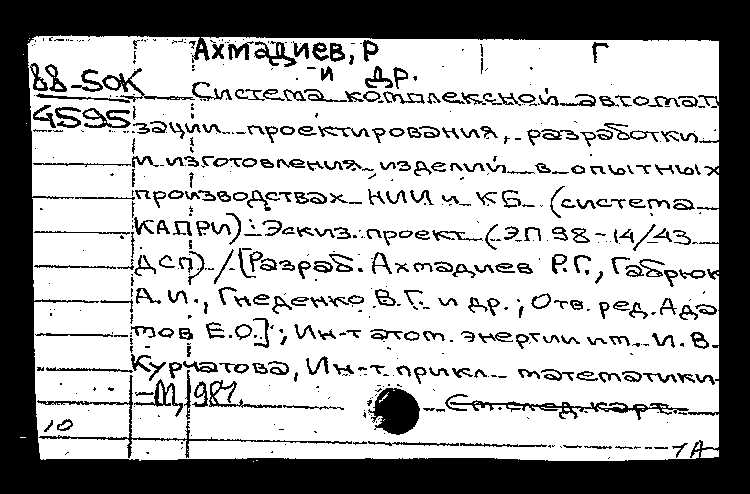 Ахмадиев, Р Г
и др.
88-5ОК
4595
Система комплексной автомат
зации проектирования, разработки
и изготовления изделий в опытных
производствах НИИ и КБ (система
КАПРИ): Эскиз. проект (ЭП 98-14/43
ДСП) / [Разраб. Ахмадиев Р.Г., Габрюк
А.И., Гнеденко В.Г. и др.; Отв. ред. Ада
мов Е.О.]; Ин-т атом. энергии им. И.В.
Курчатова, Ин-т прикл. математики
-М, 1987.
См. след. карт.
10
1А